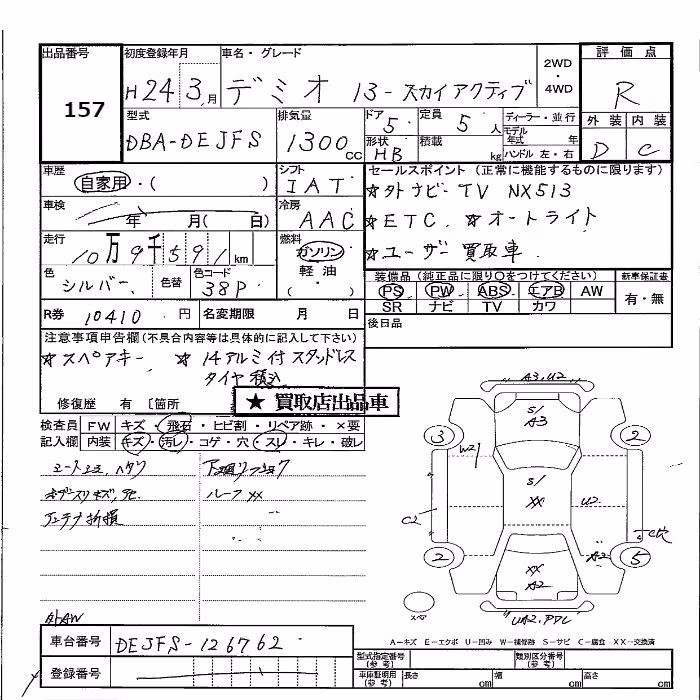 出品番号 初度登録年月 車名・グレード 2WD・4WD 評価点
157 H24 3月 デミオ 13-スカイアクティブ R
型式 排気量 ドア 定員 ディーラー・並行 外装 内装
DBA-DEJFS 1300cc 5 5人 モデル年式 年 D C
形状 HB 積載 kg ハンドル 左・右
車歴 シフト セールスポイント (正常に機能するものに限ります)
自家用・( ) IAT ★外ナビ・TV NX513
車検 冷房 ★ETC. ★オートライト
年 月( 日) AAC ★ユーザー買取車
走行 燃料
10万9千591km ガソリン・
色 色替 色コード 軽油・
シルバー 38P ( )
装備品(純正品に限り○をつけてください) 新車保証書
PS PW ABS エアB AW 有・無
SR ナビ TV カワ
R券 10410円 名変期限 月 日 後日品
注意事項申告欄(不具合内容等は具体的に記入して下さい)
★スペアキー ★14アルミ付スタッドレス
タイヤ積込
修復歴 有 〔箇所
★ 買取店出品車
検査員 FW キズ・飛石・ヒビ割・リペア跡・×要
記入欄 内装 キズ・汚レ・コゲ・穴・スレ・キレ・破レ
ルーフXX
アンテナ折損
外AW
A3,U2
S/
A3
3 2
W21
S/
XX U2
C2 C穴
2 A2 5
XX
A2
スペア
A=キズ E=エクボ U=凹み W=補修跡 S=サビ C=腐食 XX=交換済
車台番号 DEJFS-126762
登録番号
型式指定番号(参考) 類別区分番号(参考)
車庫証明用(参考) 長さ cm 幅 cm 高さ cm